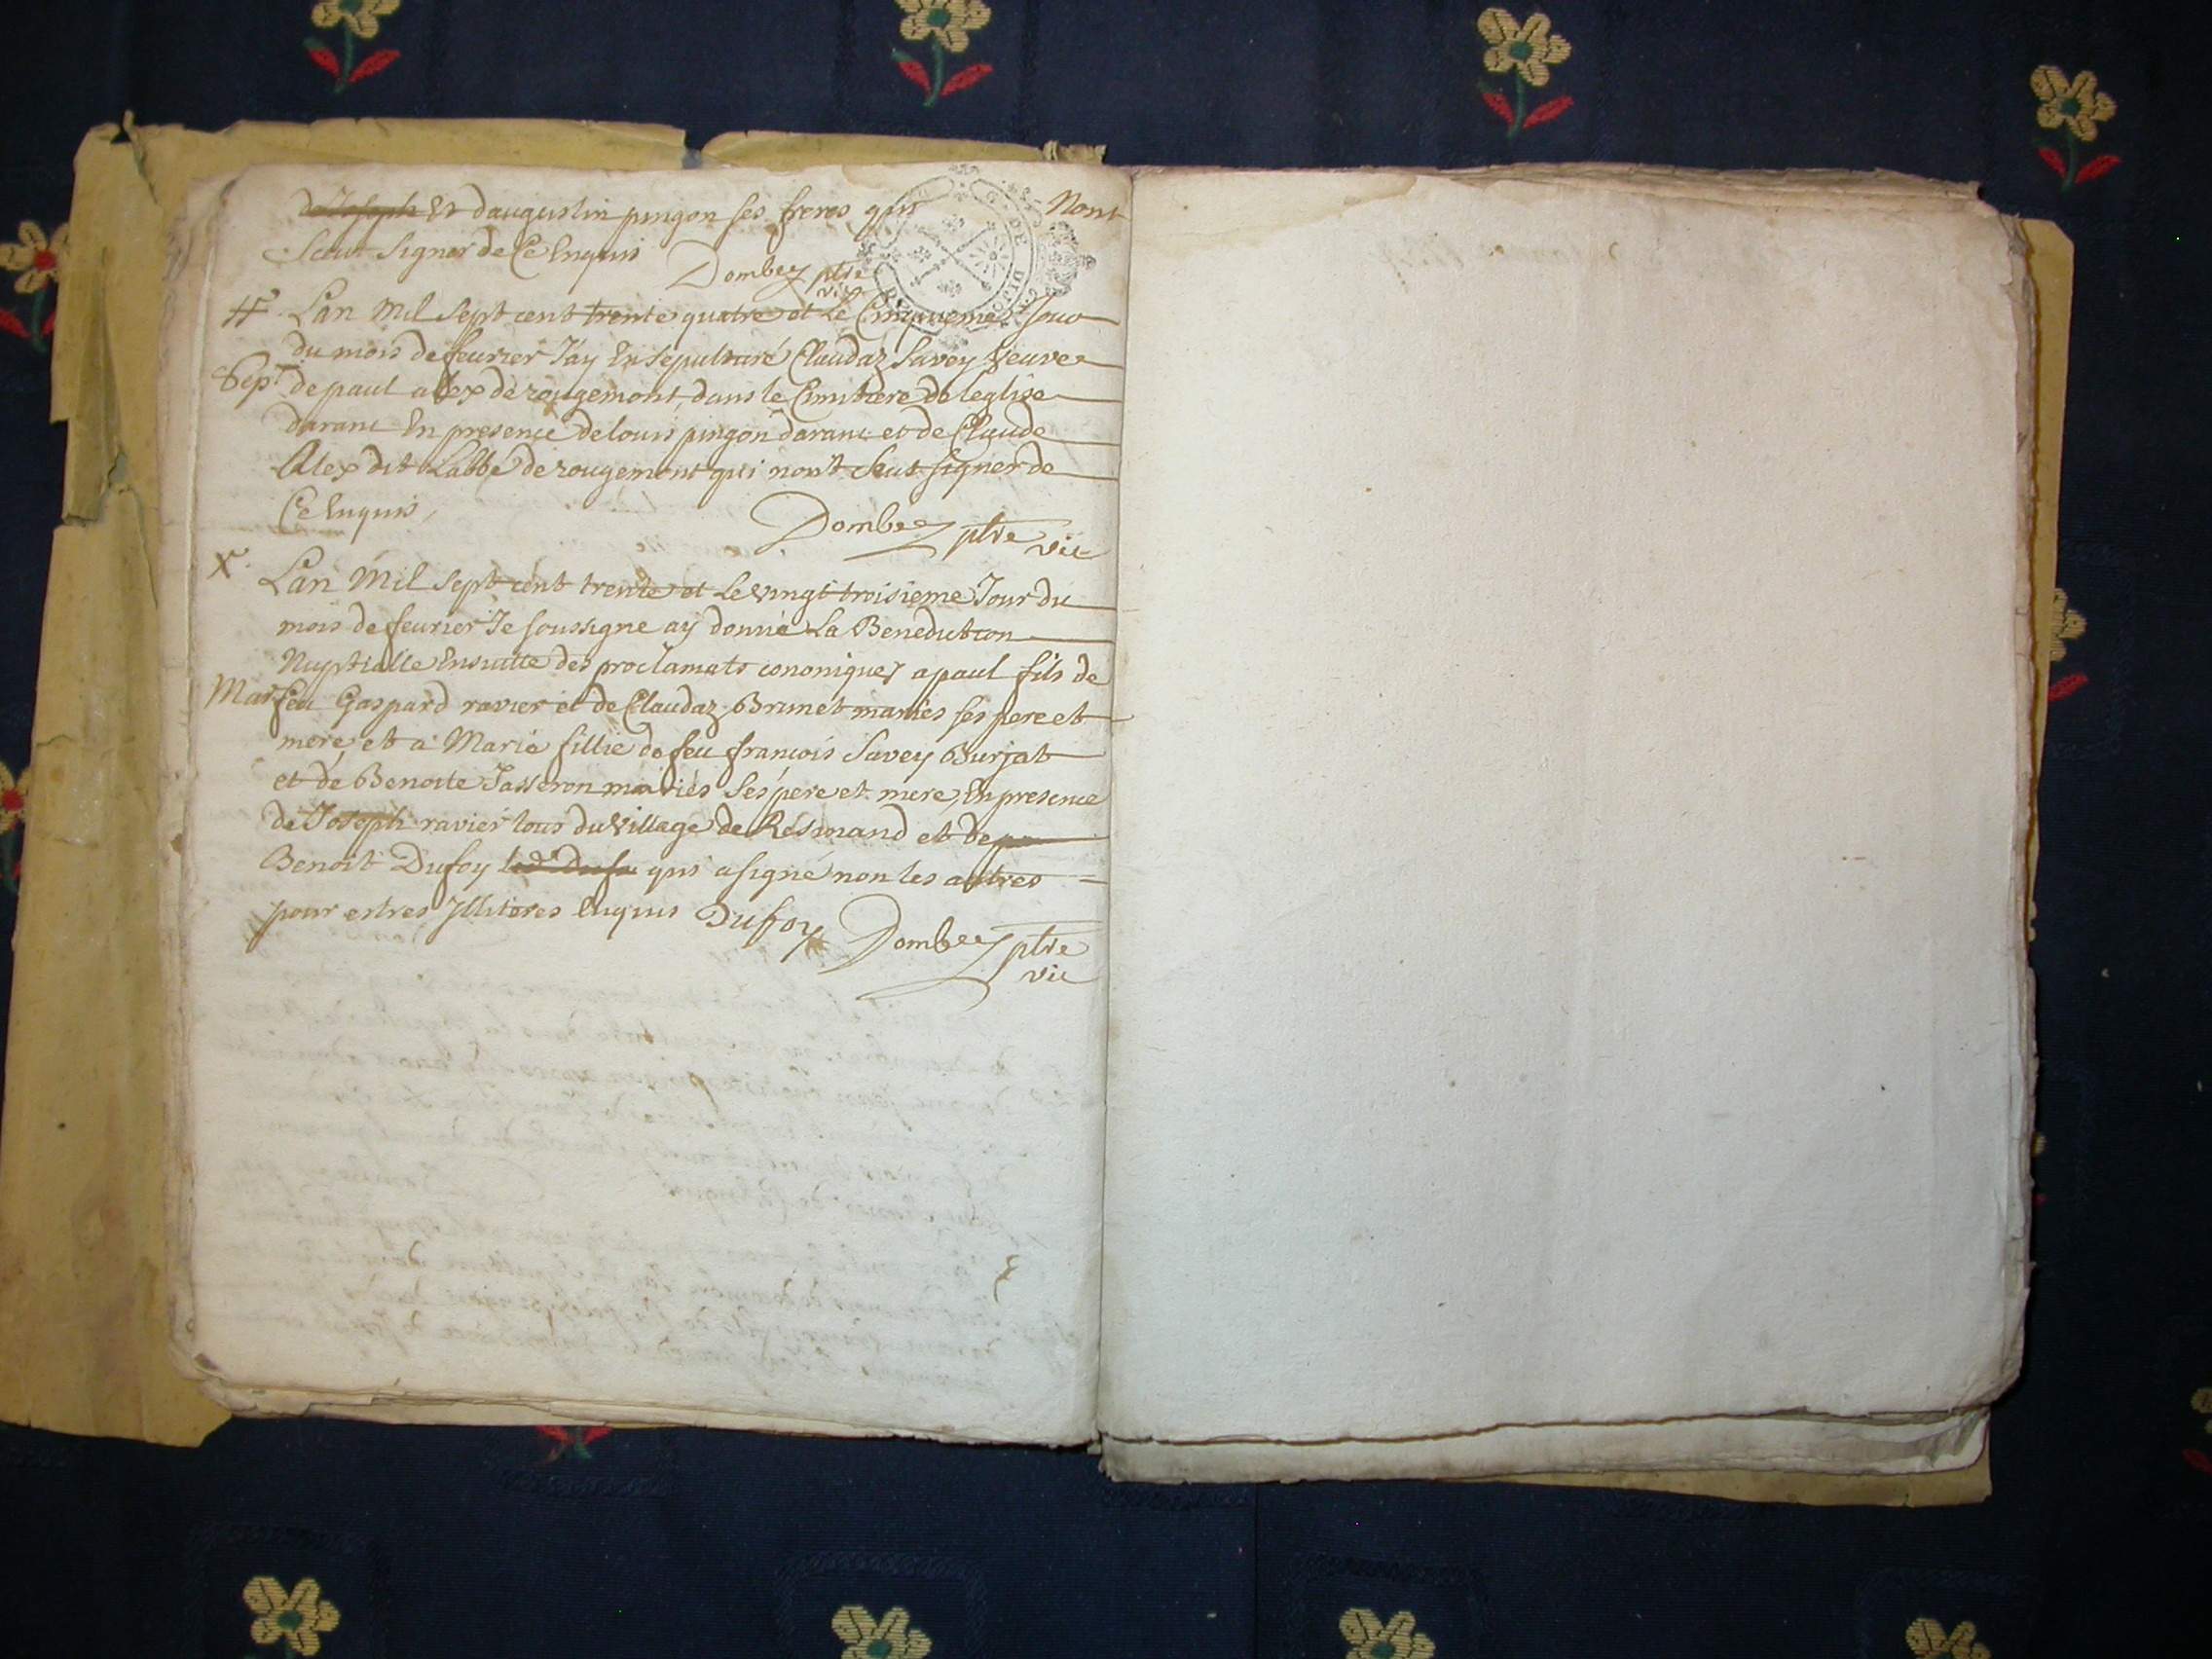 de Joseph Et daugustin pingon ses freres qui Nont
Sceut signer de Ce Enquis
Dombey ptre
vic
Lan Mil Sept cent trente quatre et Le Cinquieme Jour
du mois de feurier J'ay Ensepulturé Claudaz Savey Veuve
Sep.r de paul alex de rougemont, dans le Cimitiere de leglise
daranc En presence de louis pingon daranc et de Claude
Alex dit Labbé de rougemont qui nont Sceut signer de
Ce Enquis,
Dombey ptre vic
Lan Mil sept cent trente et Le vingt troisieme Jour du
mois de feurier Je soussigne ay donné La Benediction
Nuptialle Ensuitte des proclamats cononiques a paul fils de
Mar feu Gaspard ravier et de Claudaz Brunet mariés ses pere et
mere, et a Marie fillie de feu francois Savey Burjat
et de Benoite Jasseron mariés Ses pere et mere, En presence
de Joseph ravier tous du Village de Résinand et de
Benoit Dufoy qui a signé non les autres
pour estres Illiteres Enquis Duffoy Dombey ptre
vic